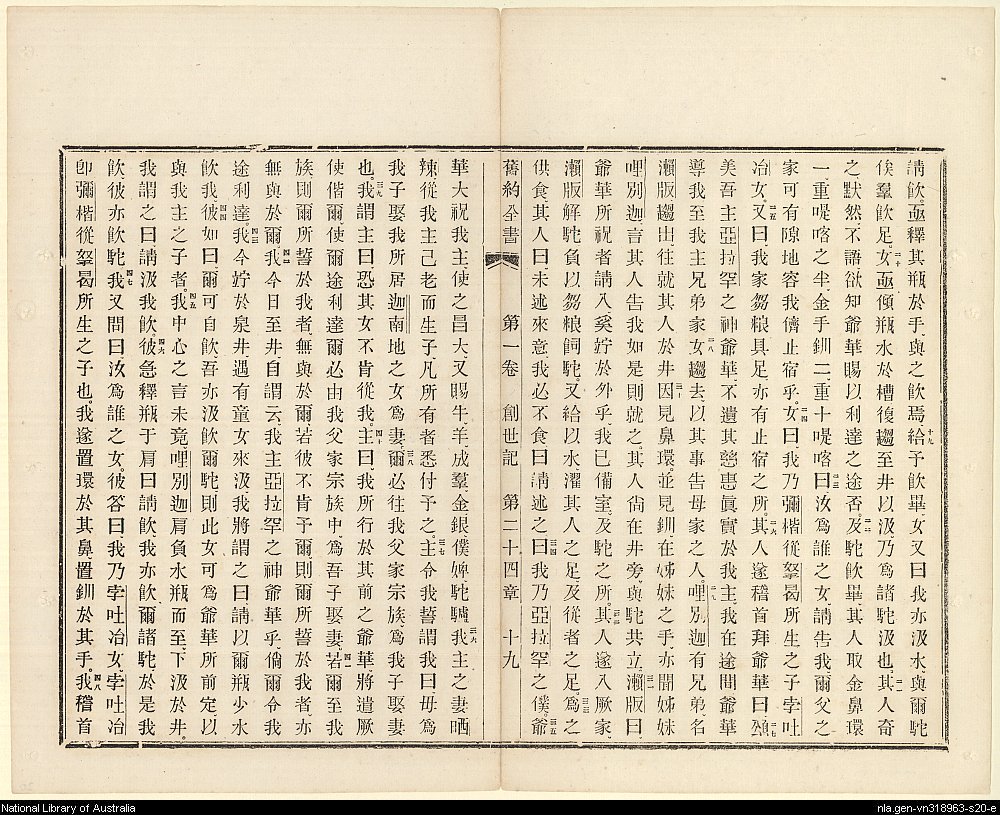 請飲亟釋其瓶於手與之飲焉十九給予飲畢女又曰我亦汲水與爾駝
俟羣飲足二十女亟傾瓶水於槽復趨至井以汲乃爲諸駝汲也二一其人奇
之默然不語欲知爺華賜以利達之途否二二及駝飲畢其人取金鼻環
一重喼喀之半金手釧二重十喼喀二三曰汝爲誰之女請告我爾父之
家可有隙地容我儕止宿乎二四女曰我乃彌楷從拏曷所生之子孛吐
冶女二五又曰我家芻粮具足亦有止宿之所二六其人遂稽首拜爺華曰二七頌
美吾主亞拉罕之神爺華不遺其慈惠眞實於我主我在途間爺華
導我至我主兄弟家二八女趨去以其事告母家之人二九哩別迦有兄弟名
瀨版趨出往就其人於井三十因見鼻環並見釧在姊妹之手亦聞姊妹
哩別迦言其人告我如是則就之其人尙在井旁與駝共立三一瀨版曰
爺華所祝者請入奚竚於外乎我已備室及駝之所三二其人遂入厥家
瀨版解駝負以芻粮飼駝又給以水濯其人之足及從者之足三三爲之
供食其人曰未述來意我必不食曰請述之三四曰我乃亞拉罕之僕三五爺
舊約全書 第一卷 創世記 第二十四章 十九
華大祝我主使之昌大又賜牛羊成羣金銀僕婢駝驢三六我主之妻哂
辣從我主己老而生子凡所有者悉付予之三七主令我誓謂我曰毋爲
我子娶我所居迦南地之女爲妻三八爾必往我父家宗族爲我子娶妻
也三九我謂主曰恐其女不肯從我四十主曰我所行於其前之爺華將遣厥
使偕爾使爾途利達爾必由我父家宗族中爲吾子娶妻四一若爾至我
族則爾所誓於我者無與於爾若彼不肯予爾則爾所誓於我者亦
無與於爾四二我今日至井自謂云我主亞拉罕之神爺華乎倘爾令我
途利達四三我今竚於泉井遇有童女來汲我將謂之曰請以爾瓶少水
飲我四四彼如曰爾可自飲吾亦汲飲爾駝則此女可爲爺華所前定以
與我主之子者四五我中心之言未竟哩別迦肩負水瓶而至下汲於井
我謂之曰請汲我飲四六彼急釋瓶于肩曰請飲我亦飲爾諸駝於是我
飲彼亦飲駝四七我又問曰汝爲誰之女彼答曰我乃孛吐冶女孛吐冶
卽彌楷從拏曷所生之子也我遂置環於其鼻置釧於其手四八我稽首
National Library of Australia
nla.gen-vn318963-s20-e